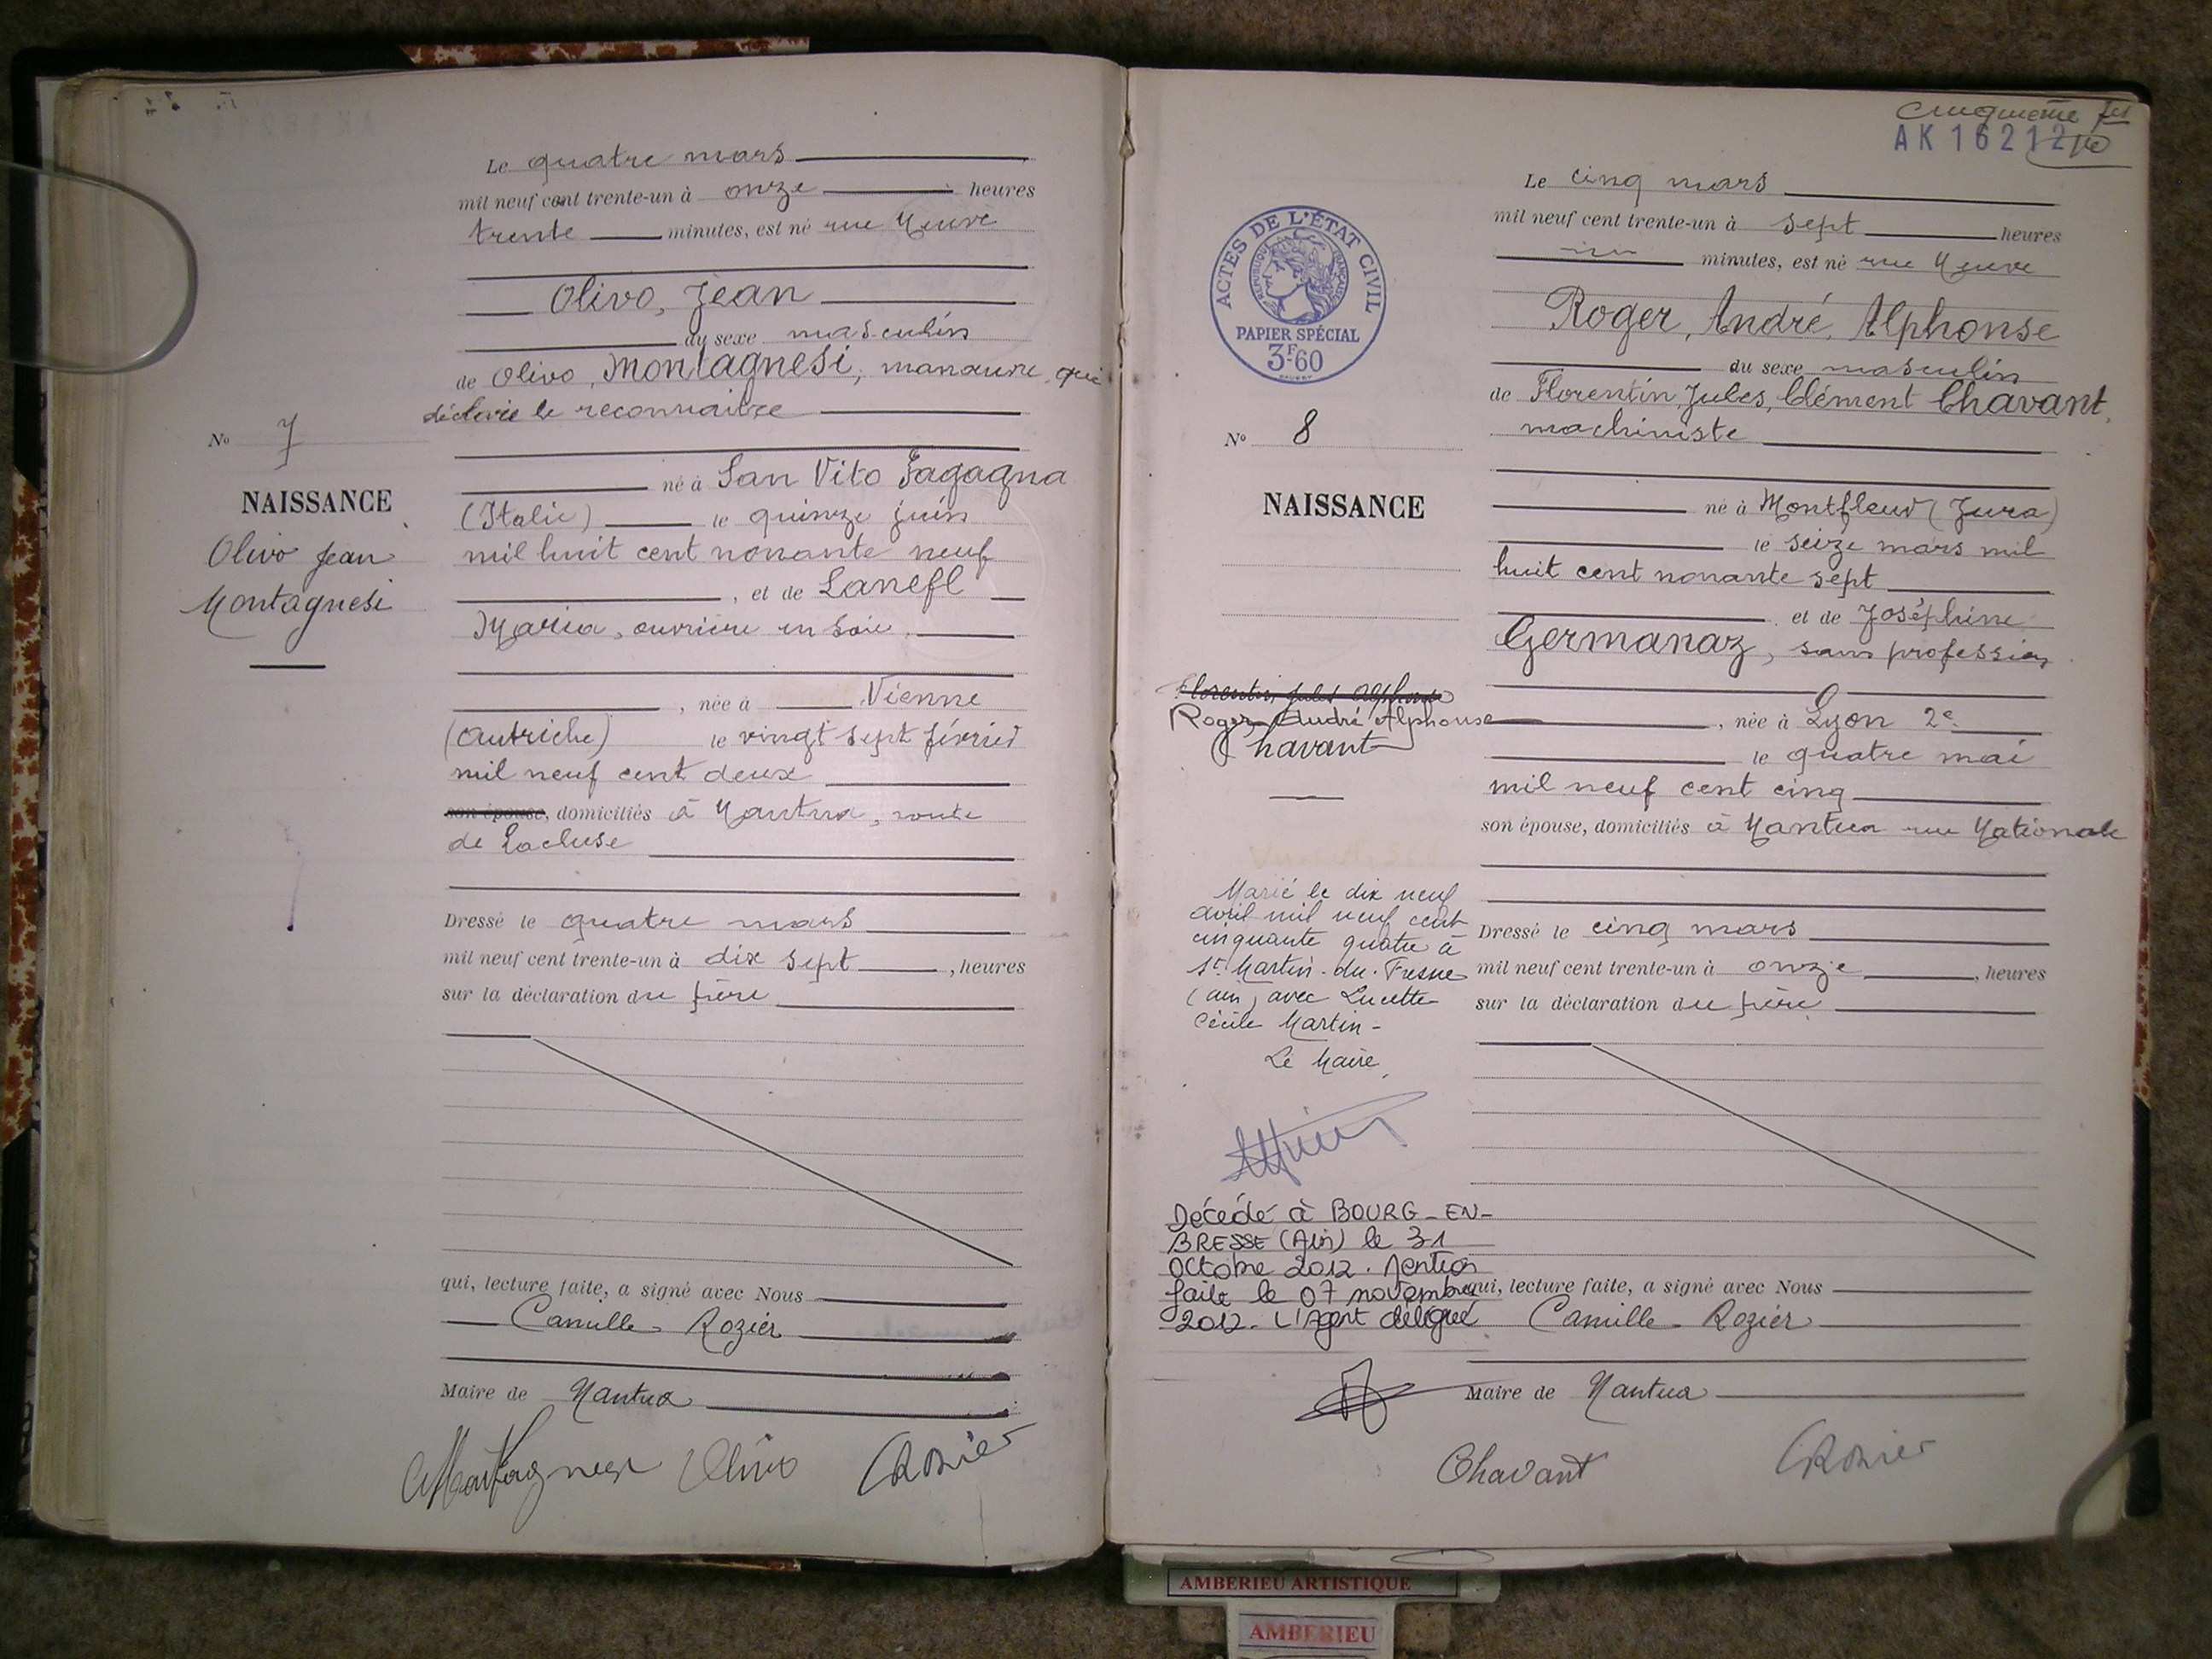 Le quatre mars
mil neuf cent trente-un à onze heures
trente minutes, est né rue Neuve
Olivo, Jean
du sexe masculin
de Olivo, Montagnesi, manœuvre, qui
déclare le reconnaitre
né à San Vito Fagagna
(Italie) le quinze juin
mil huit cent nonante neuf
, et de Lanefl
Maria, ouvrière en soie
, née à Vienne
(Autriche) le vingt sept février
mil neuf cent deux
son épouse, domiciliés à Nantua, route
de Lacluse
Dressé le quatre mars
mil neuf cent trente-un à dix sept, heures
sur la déclaration du père
qui, lecture faite, a signé avec Nous
Camille Rozier
Maire de Nantua
Olivo CRozier
No 7
NAISSANCE
Olivo Jean
Montagnesi
Cinquième
AK 16212
Le cinq mars
mil neuf cent trente-un à sept heures
minutes, est né rue Neuve
Roger, André, Alphonse
du sexe masculin
de Florentin, Jules, Clément Chavant,
machiniste
né à Montfleur (Jura)
le seize mars mil
huit cent nonante sept
et de Joséphine
Germanaz, sans profession
, née à Lyon 2e
le quatre mai
mil neuf cent cinq
son épouse, domiciliés à Nantua rue Nationale
Dressé le cinq mars
mil neuf cent trente-un à onze, heures
sur la déclaration du père
qui, lecture faite, a signé avec Nous
Camille Rozier
Maire de Nantua
Chavant CRozier
ACTES DE L'ÉTAT CIVIL
RÉPUBLIQUE FRANÇAISE
PAPIER SPÉCIAL
3F60
No 8
NAISSANCE
Florentin Jules Alphonse
Roger André Alphonse
Chavant
Marié le dix neuf
avril mil neuf cent
cinquante quatre à
St Martin-du-Fresne
(Ain) avec Lucette
Cécile Martin-
Le Maire,
Décédé à BOURG-EN-
BRESSE (Ain) le 31
Octobre 2012. Mention
faite le 07 novembre
2012. L'Agent délégué
AMBERIEU ARTISTIQUE
AMBERIEU